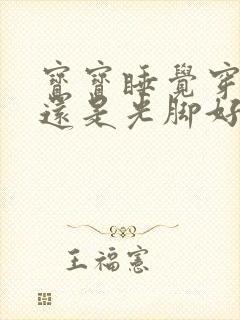 寶寶睡覺穿
還是光腳好
王福憲